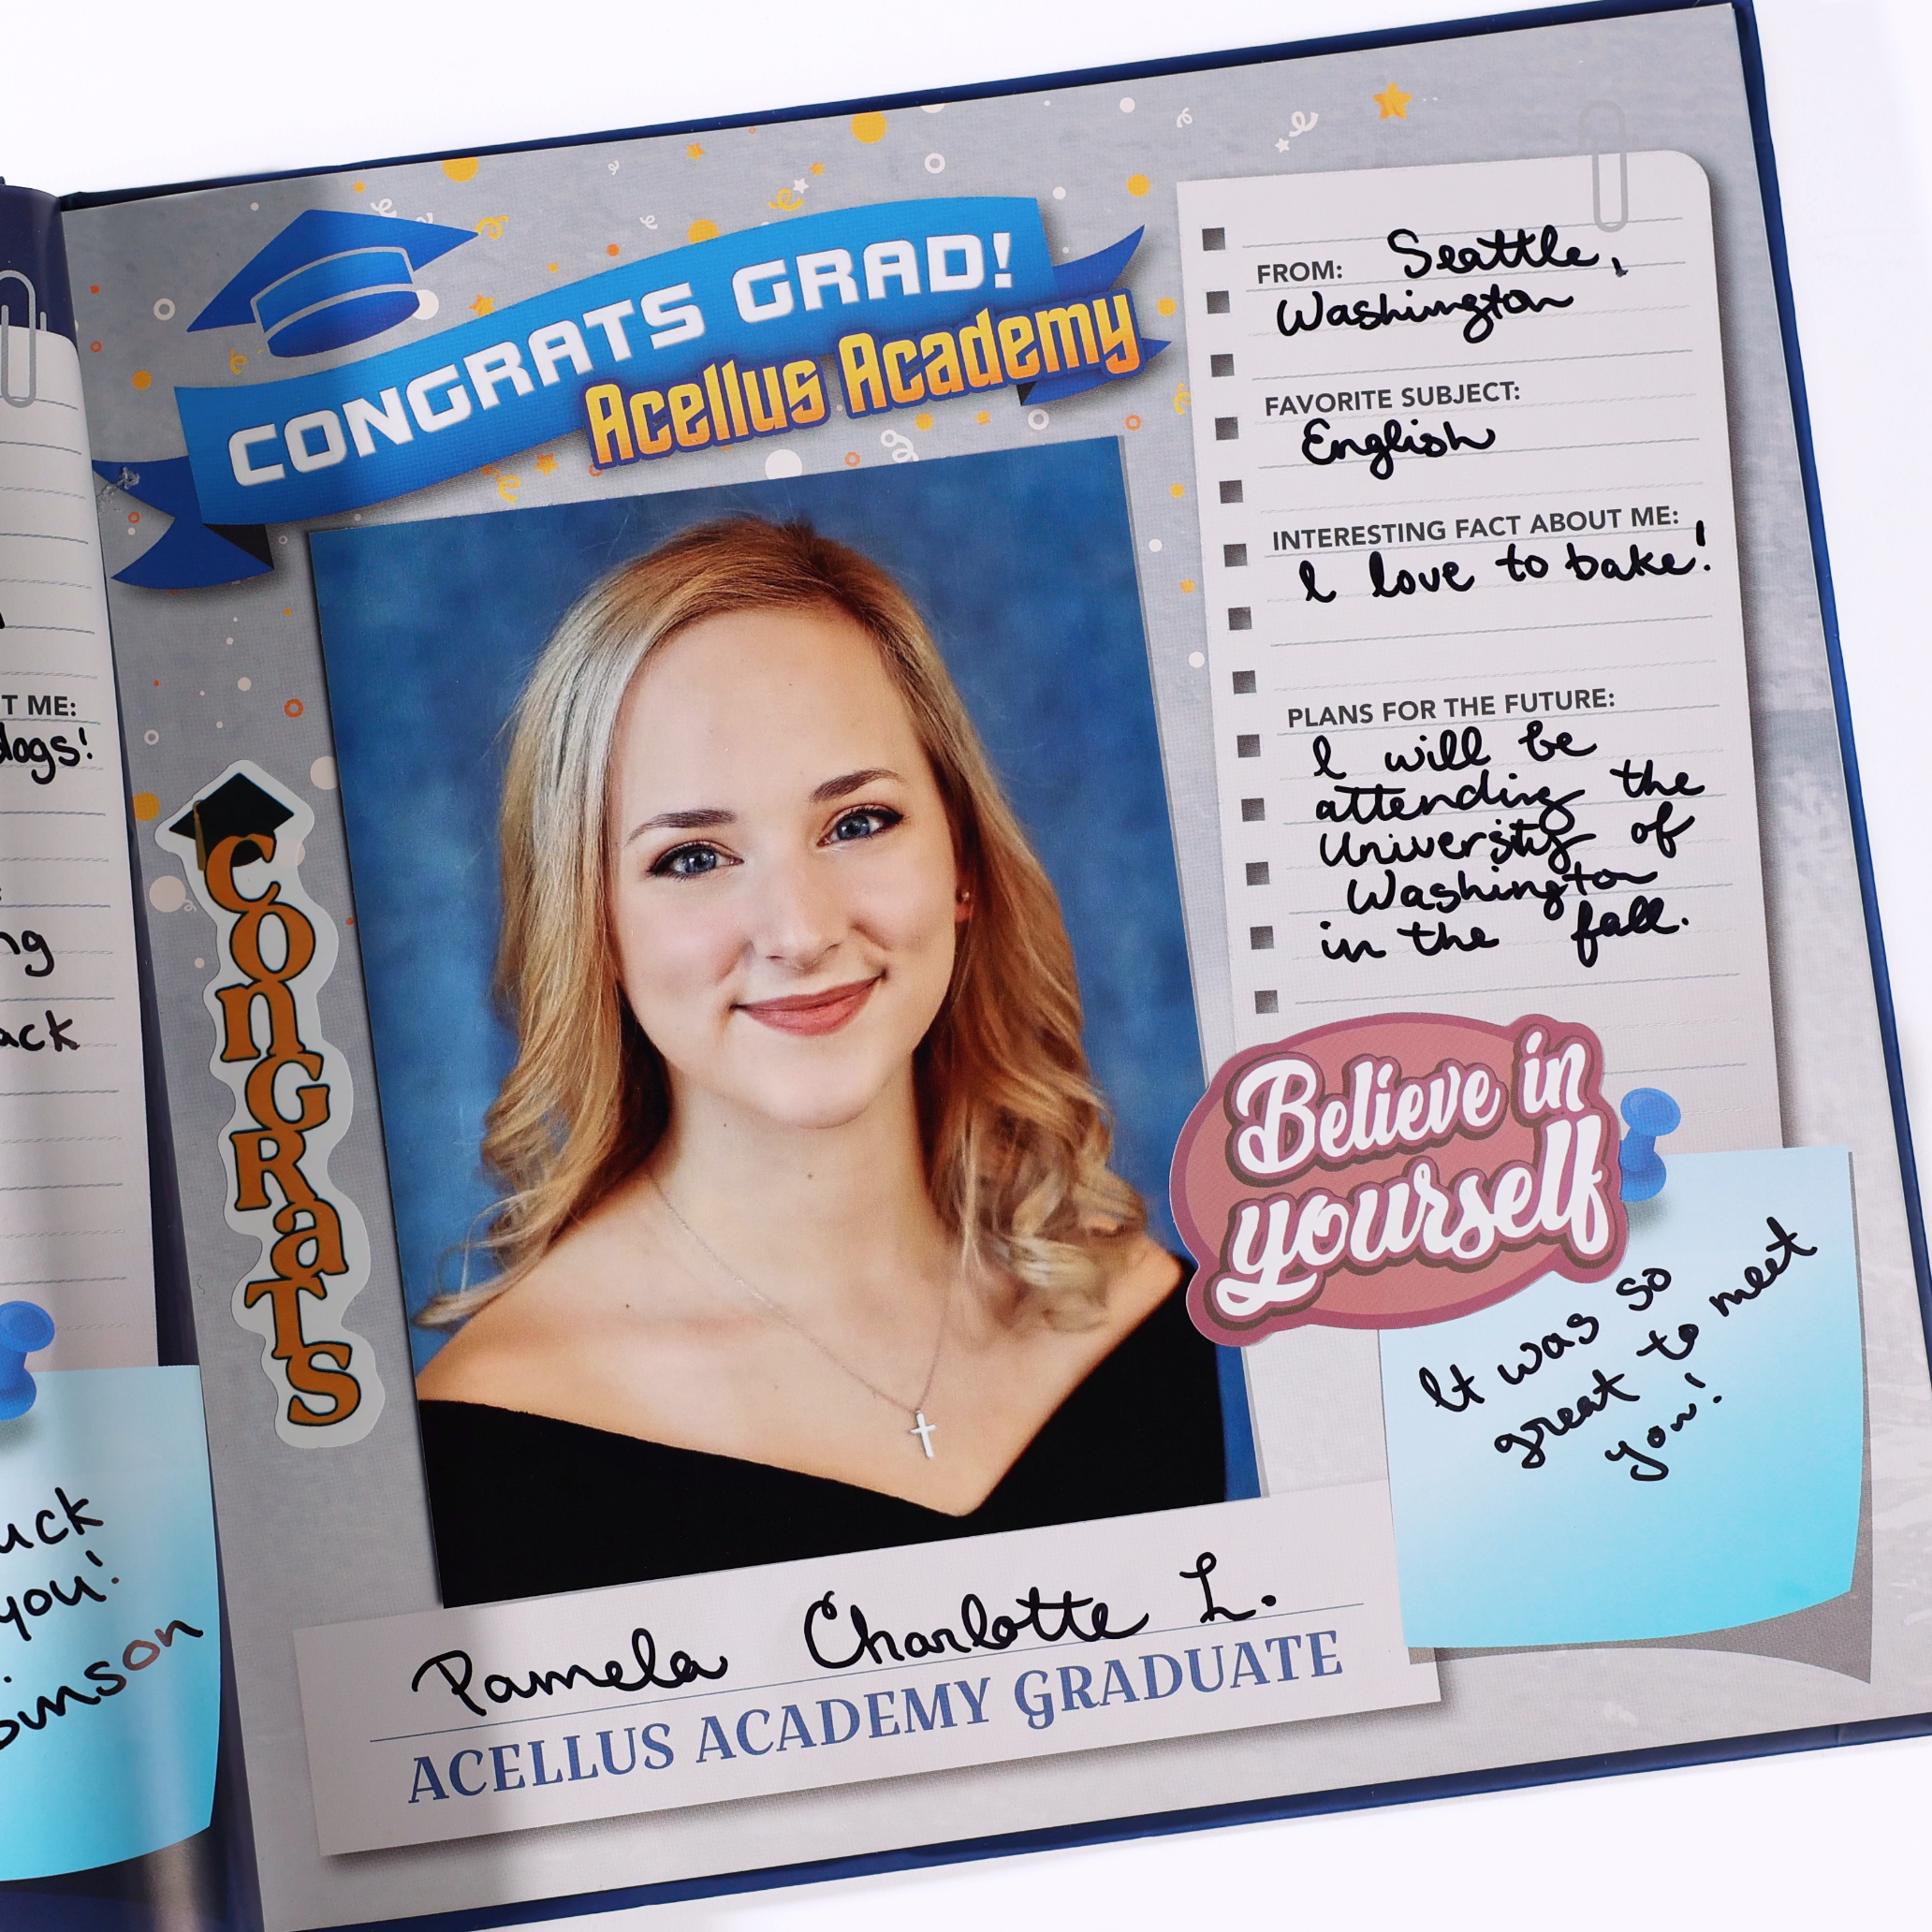 T ME:
dogs!
ng
ack
uck
you!
binson
CONGRATS GRAD!
Acellus Academy
CONGRATS
Pamela Charlotte L.
ACELLUS ACADEMY GRADUATE
FROM: Seattle,
Washington
FAVORITE SUBJECT:
English
INTERESTING FACT ABOUT ME:
I love to bake!
PLANS FOR THE FUTURE:
I will be
attending the
University of
Washington
in the fall.
Believe in
yourself
It was so
great to meet
you!